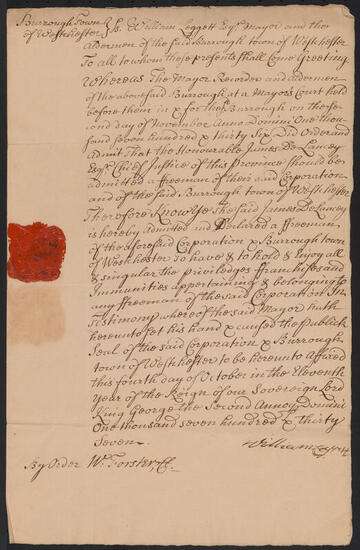 Burrough Town } Ss. William Leggett Esqr. Mayor and the
of Westchester Aldermen of the said Burrough town of Westchester
To all to whom these presents shall Come Greeting
Whereas The Mayor Recorder and Aldermen
of the abovesaid Burrough at a Mayors Court held
before them in & for the sd Burrough on the se=
cond day of November Anno Domini One thou=
sand seven hundred & thirty Six Did Order and
Admit That the Honourable James De Lancey
Esqr. Chief Justice of this Province should be
admitted a freeman of their said Corporation
and of the said Burrough town of Westchester
Therefore Know Ye The said James De Lancey
is hereby Admitted and Declared a freeman
of the aforesaid Corporation & Burrough town
of Westchester To have & to hold & Enjoy all
& singular the priviledges franchises and
Immunities appertaining & belonging to
any freeman of the said Corporation In
Testimony whereof the said Mayor hath
hereunto set his hand & caused the publick
Seal of the said Corporation & Burrough
town of Westchester to be hereunto Affixed
this fourth day of October in the Eleventh
Year of the Reign of our Sovereign Lord
King George the Second Annoq Domini
One thousand seven hundred & thirty
Seven
William Leggett
By Order W. Forster, Cl.